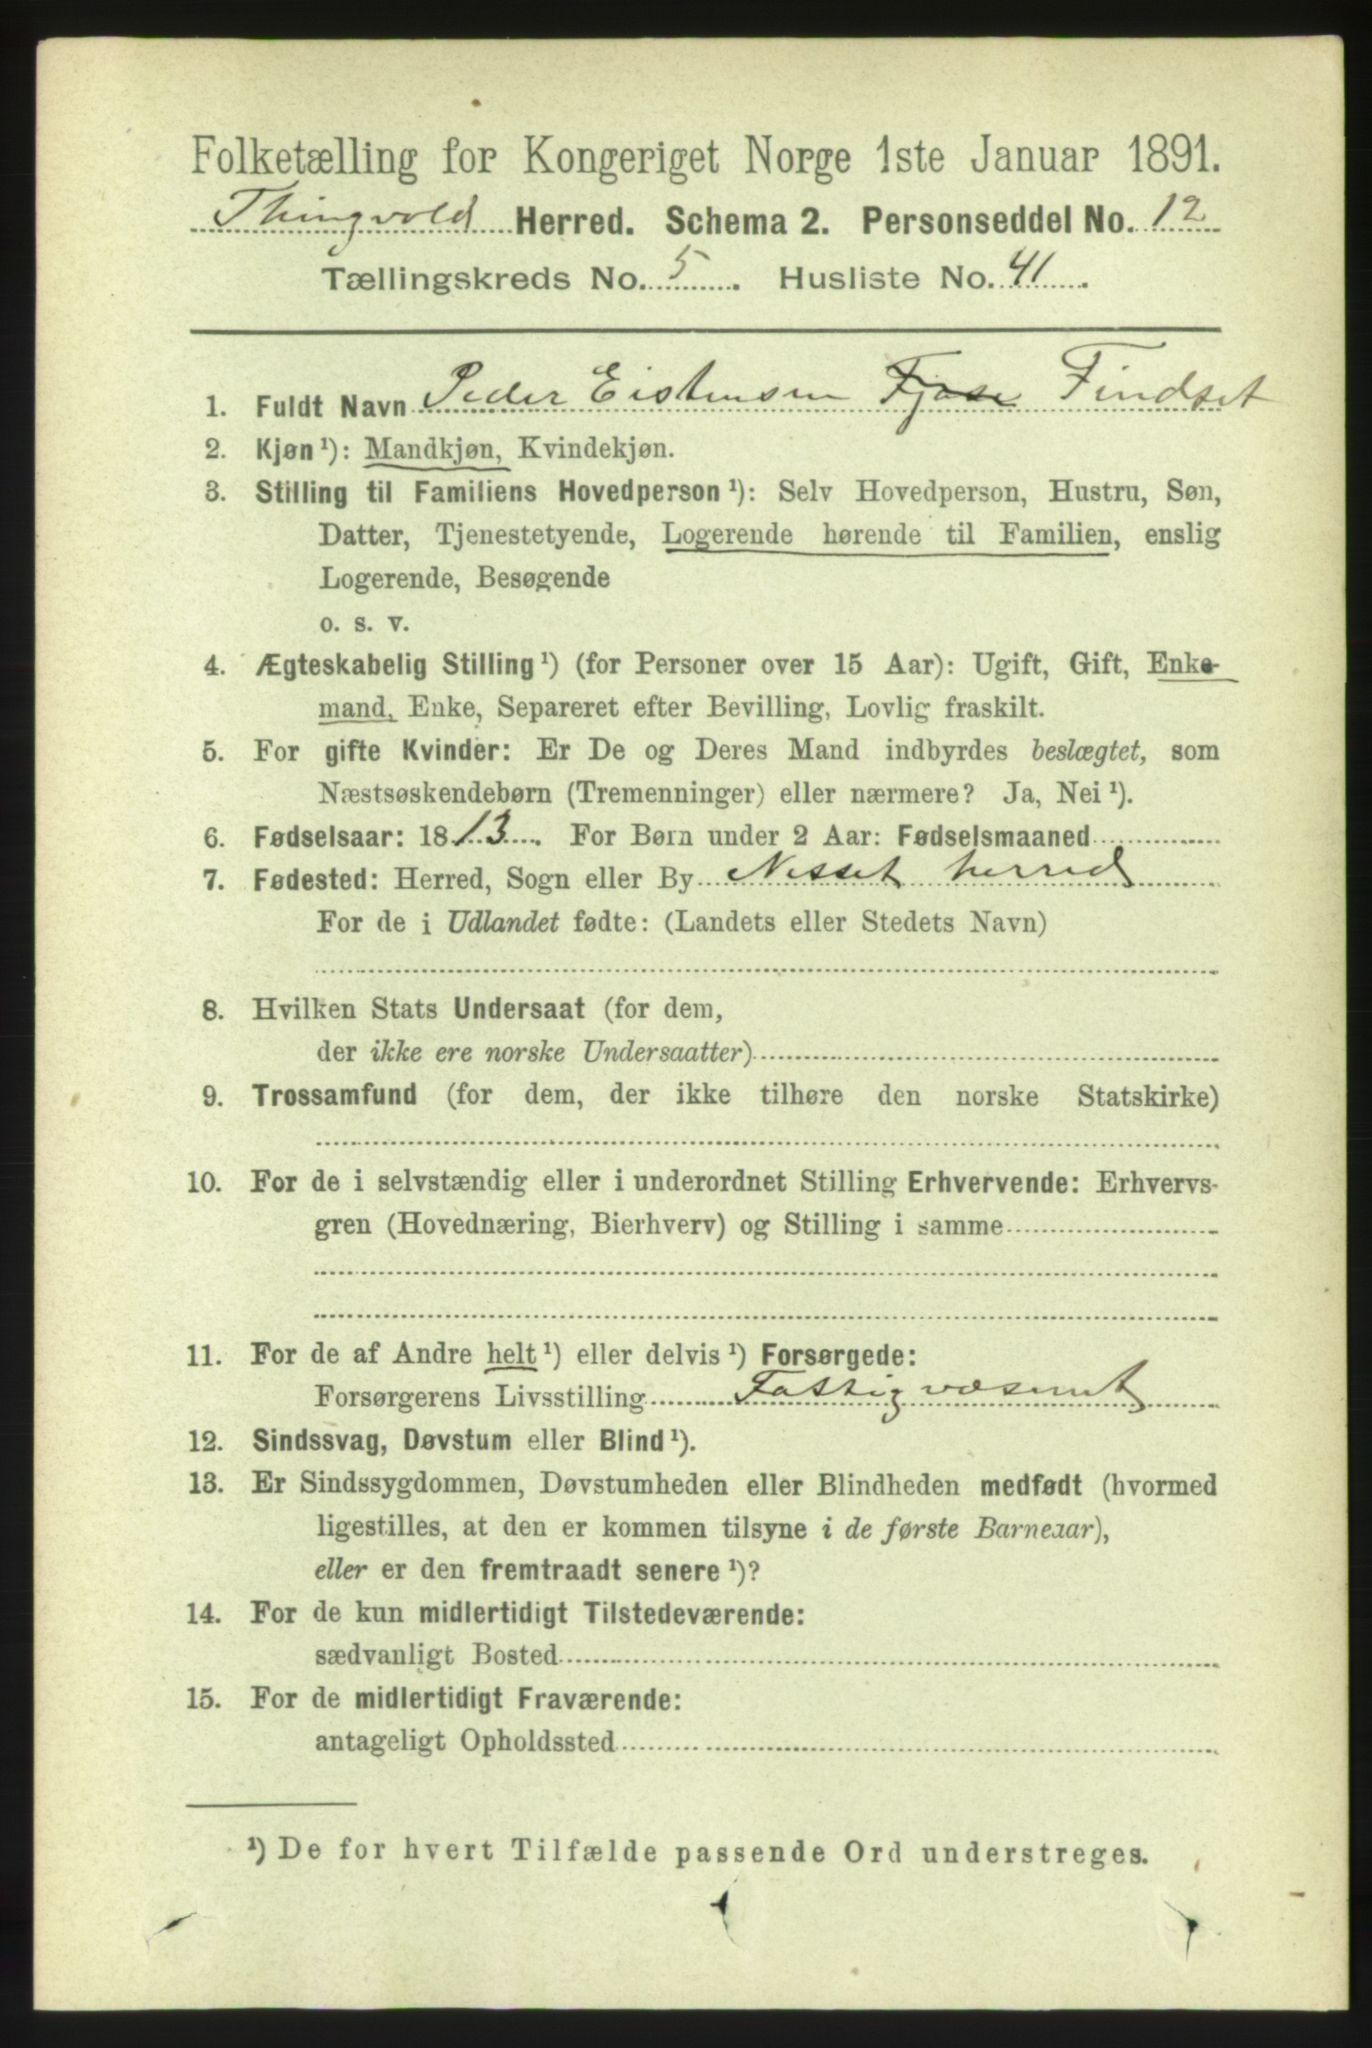 Folketælling for Kongeriget Norge 1ste Januar 1891.
Thingvold Herred. Schema 2. Personseddel No. 12
Tællingskreds No. 5. Husliste No. 41.
1. Fuldt Navn Peder Eistensen Fjøse Findset
2. Kjøn ¹): Mandkjøn, Kvindekjøn.
3. Stilling til Familiens Hovedperson ¹): Selv Hovedperson, Hustru, Søn,
Datter, Tjenestetyende, Logerende hørende til Familien, enslig
Logerende, Besøgende
o. s. v.
4. Ægteskabelig Stilling ¹) (for Personer over 15 Aar): Ugift, Gift, Enke-
mand, Enke, Separeret efter Bevilling, Lovlig fraskilt.
5. For gifte Kvinder: Er De og Deres Mand indbyrdes beslægtet, som
Næstsøskendebørn (Tremenninger) eller nærmere? Ja, Nei ¹).
6. Fødselsaar: 1813. For Børn under 2 Aar: Fødselsmaaned
7. Fødested: Herred, Sogn eller By Nesset herred
For de i Udlandet fødte: (Landets eller Stedets Navn)
8. Hvilken Stats Undersaat (for dem,
der ikke ere norske Undersaatter)
9. Trossamfund (for dem, der ikke tilhøre den norske Statskirke)
10. For de i selvstændig eller i underordnet Stilling Erhvervende: Erhvervs-
gren (Hovednæring, Bierhverv) og Stilling i samme
11. For de af Andre helt ¹) eller delvis ¹) Forsørgede:
Forsørgerens Livsstilling Fattigvæsenet
12. Sindssvag, Døvstum eller Blind ¹).
13. Er Sindssygdommen, Døvstumheden eller Blindheden medfødt (hvormed
ligestilles, at den er kommen tilsyne i de første Barneaar),
eller er den fremtraadt senere ¹)?
14. For de kun midlertidigt Tilstedeværende:
sædvanligt Bosted
15. For de midlertidigt Fraværende:
antageligt Opholdssted
¹) De for hvert Tilfælde passende Ord understreges.